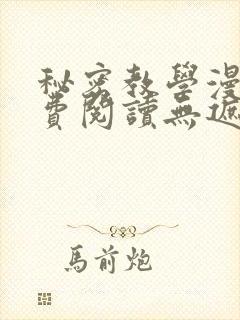 秘密教學漫
費閱讀無遮
馬前炮